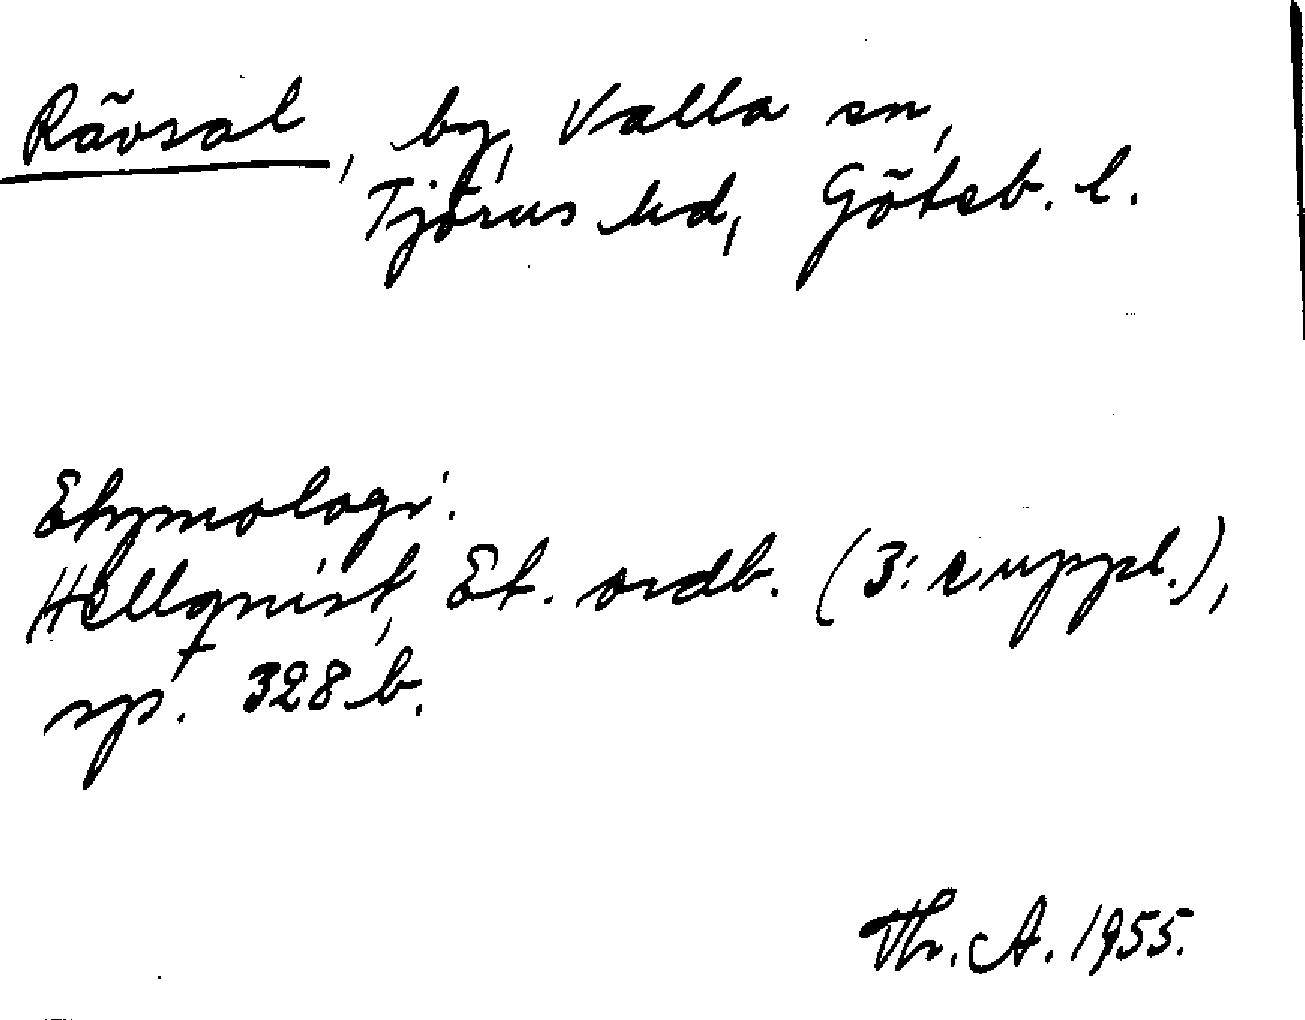 Rävsal, by, Valla sn,
Tjörns hd, Götsb. l.
Etymologi.
Hellqvist, Et. ordb. (3: suppl.),
sp. 328 b.
Th. A. 1955.